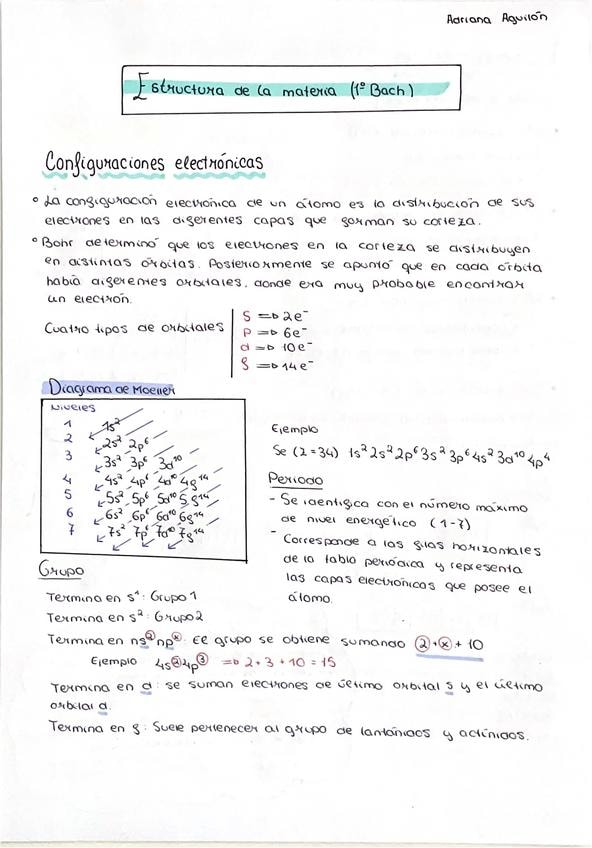 Adriana Aguilón
Estructura de la materia (1º Bach)
Configuraciones electrónicas
° La configuración electrónica de un átomo es la distribución de sus
electrones en las diferentes capas que forman su corteza.
° Bohr determinó que los electrones en la corteza se distribuyen
en distintas órbitas. Posteriormente se apuntó que en cada órbita
había diferentes orbitales, donde era muy probable encontrar
un electrón.
Cuatro tipos de orbitales
S => 2e⁻
P => 6e⁻
d => 10e⁻
f => 14e⁻
Diagrama de Moeller
Niveles
1 1s²
2 2s² 2p⁶
3 3s² 3p⁶ 3d¹⁰
4 4s² 4p⁶ 4d¹⁰ 4f¹⁴
5 5s² 5p⁶ 5d¹⁰ 5f¹⁴
6 6s² 6p⁶ 6d¹⁰ 6f¹⁴
7 7s² 7p⁶ 7d¹⁰ 7f¹⁴
Ejemplo
Se (Z=34) 1s² 2s² 2p⁶ 3s² 3p⁶ 4s² 3d¹⁰ 4p⁴
Periodo
- Se identifica con el número máximo
de nivel energético (1-7)
- Corresponde a las filas horizontales
de la tabla periódica y representa
las capas electrónicas que posee el
átomo.
Grupo
Termina en s¹: Grupo 1
Termina en s²: Grupo 2
Termina en ns² npˣ: El grupo se obtiene sumando 2 + x + 10
Ejemplo 4s² 4p³ => 2 + 3 + 10 = 15
Termina en d: se suman electrones de último orbital s y el último
orbital d.
Termina en f: Suele pertenecer al grupo de lantánidos y actínidos.